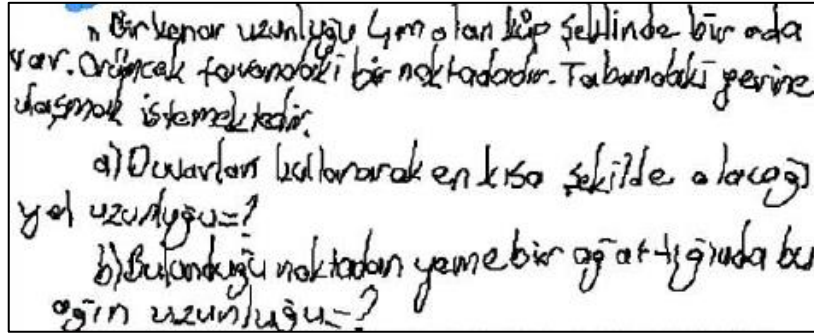 " Bir kenar uzunluğu 4m olan küp şeklinde bir oda
var. Örümcek tavandaki bir noktadadır. Tabandaki yerine
ulaşmak istemektedir.
a) Duvarları kullanarak en kısa şekilde alacağı
yol uzunluğu=?
b) Bulunduğu noktadan yeme bir ağ attığında bu
ağın uzunluğu=?